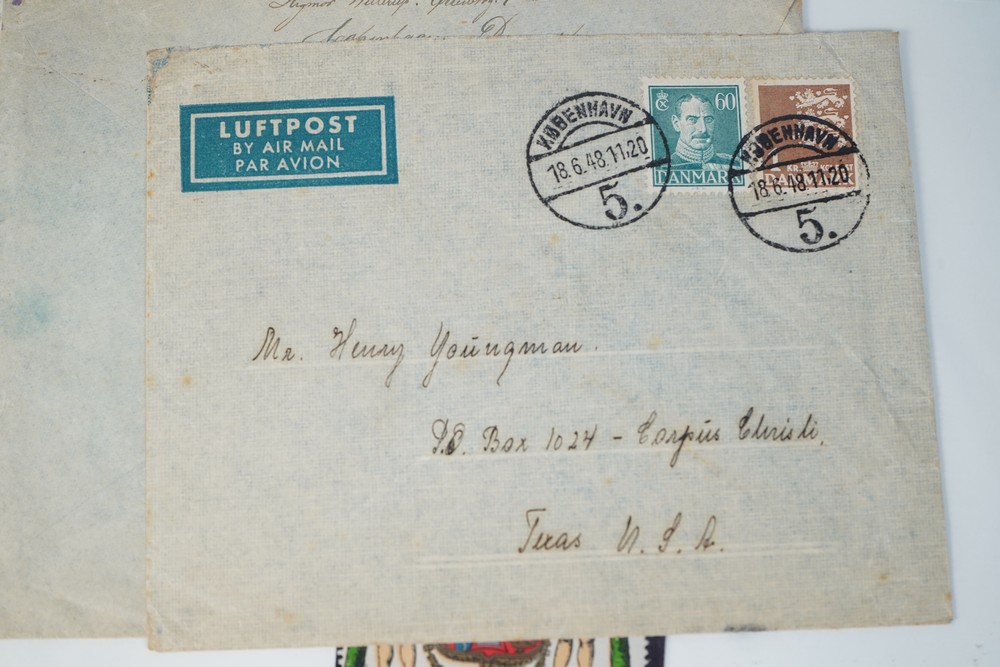 Copenhagen
LUFTPOST
BY AIR MAIL
PAR AVION
KØBENHAVN
18.6.48.11.20
5.
60
DANMARK
KØBENHAVN
18.6.48.11.20
5.
1 KR
Mr. Henry Youngman.
P.O. Box 1024 - Corpus Christi,
Texas U. S. A.